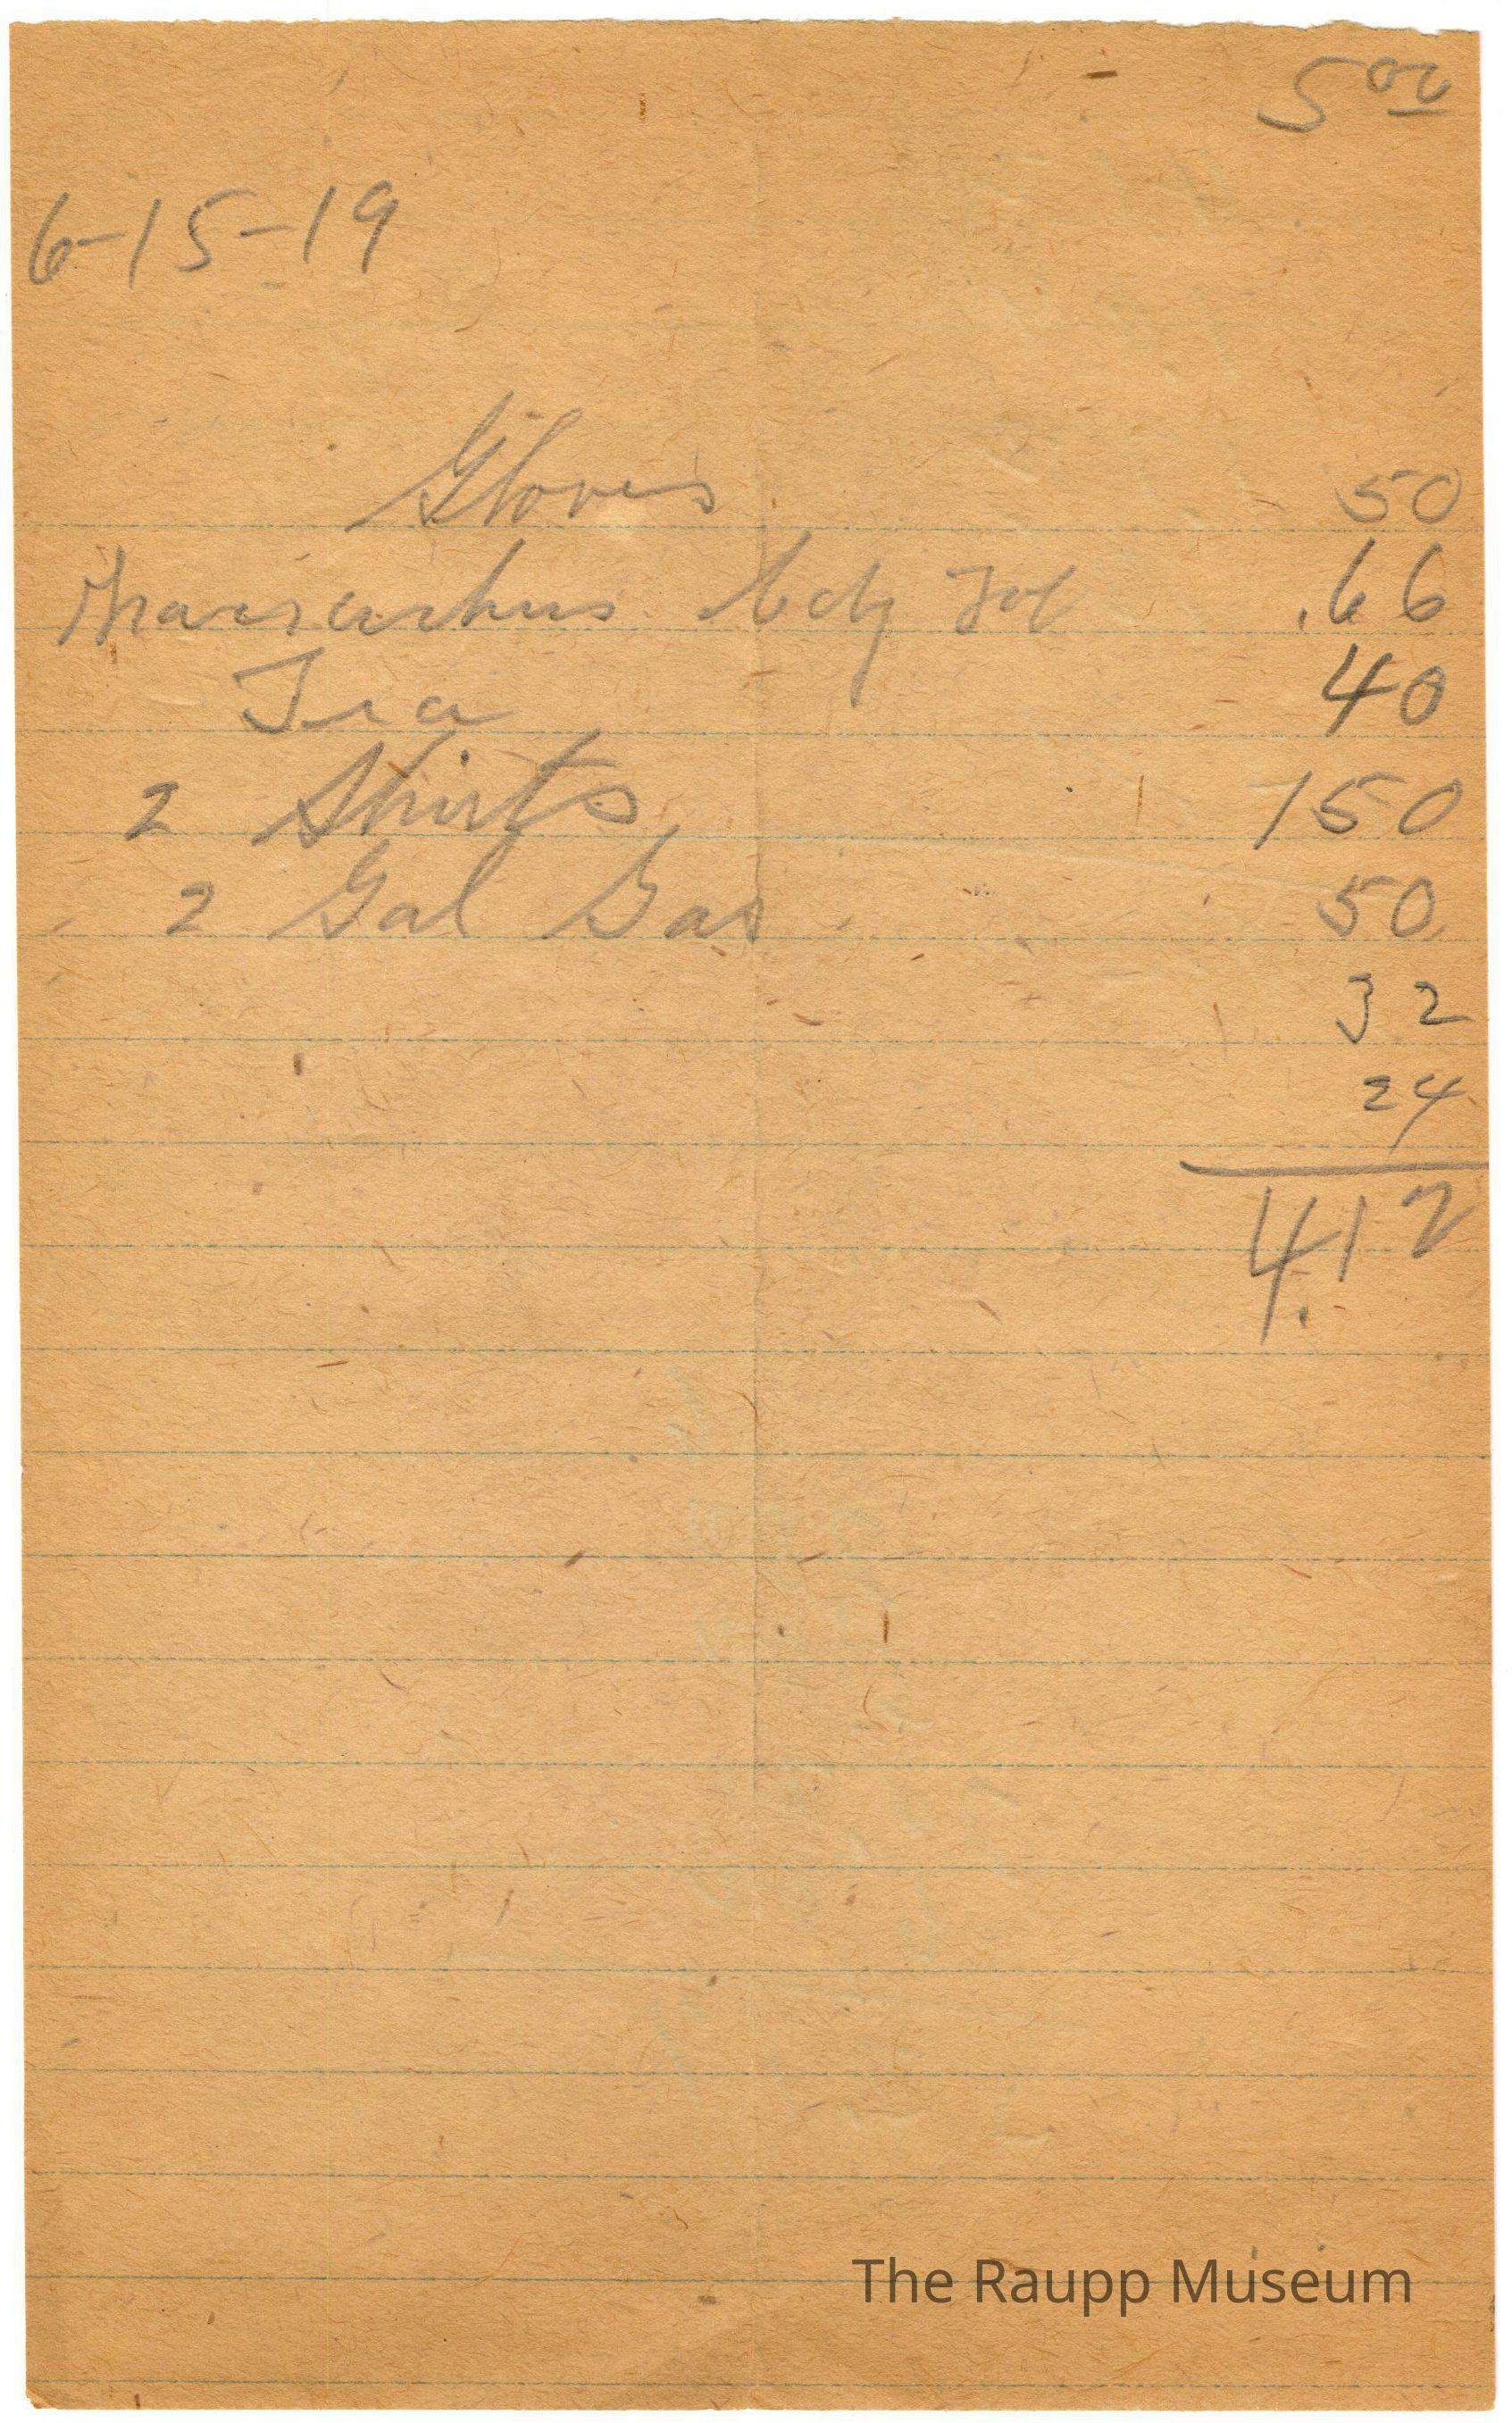 5 00
6-15-19
Gloves 50
.66
Tea 40
2 Shirts 150
2 Gal Gas 50
32
24
4.12
The Raupp Museum